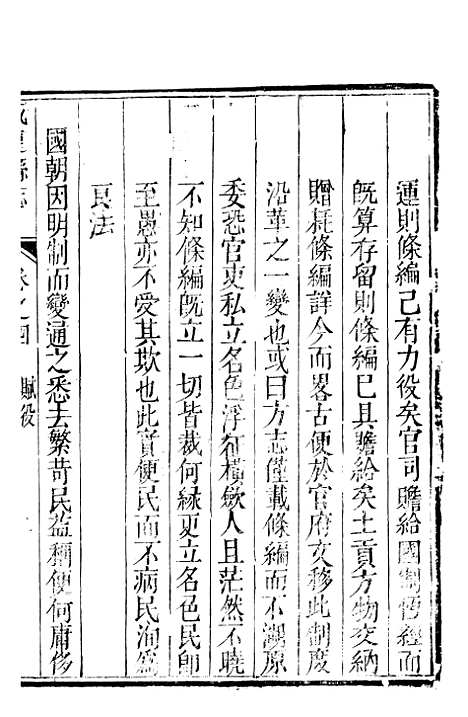 運則條編已有力役矣官司贍給國制暫經而
旣算存留則條編已具贍給矣土貢方物交納
贈耗條編詳今而畧古便於官府文移此制度
沿革之一變也或曰方志僅載條編而不溯原
委恐官吏私立名色浮征橫歛人且茫然不曉
不知條編旣立一切皆裁何緣更立名色民卽
至愚亦不受其欺也此實便民而不病民洵爲
良法
國朝因明制而變通之悉去繁苛民益稱便何庸侈
縣志
卷之四
賦役